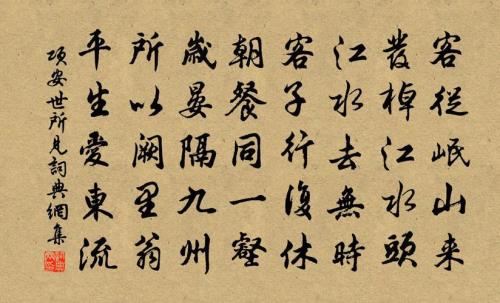 客從岷山来
發棹江水頭
江水去無時
客子行復休
朝餐同一壑
歲晏隔九州
所以阙里翁
平生愛東流
项安世所見詞典網集